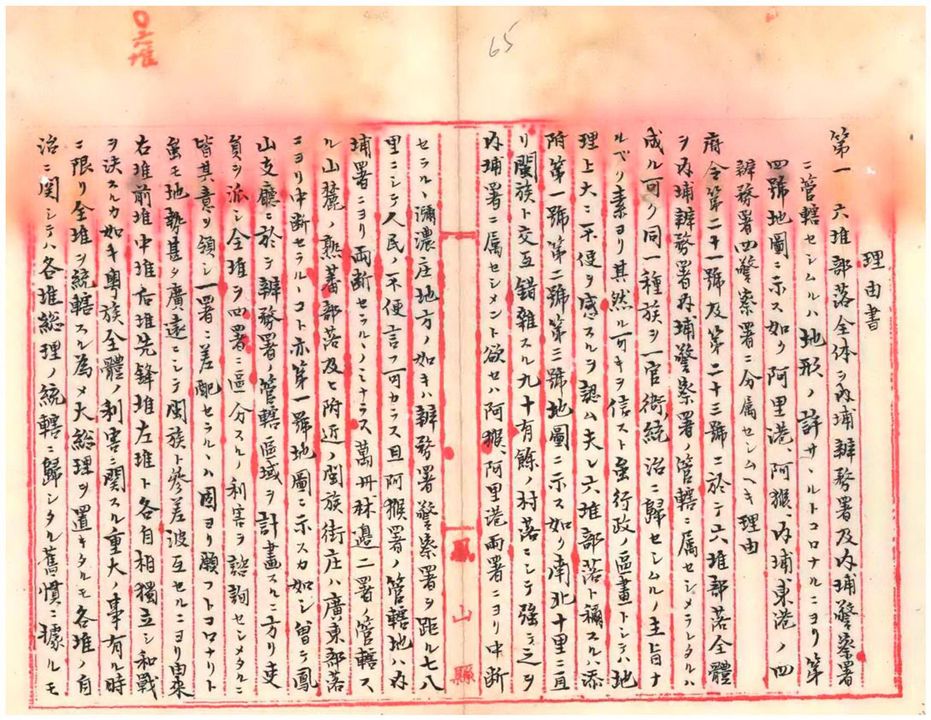 65
〇六堆
理由書
第一 六堆部落全体ヲ内埔辦務署及内埔警察署
ニ管轄セシムルハ地形ノ許サヽルトコロナルニヨリ第
四號地圖ニ示ス如ク阿里港、阿猴、内埔東港ノ四
辦務署四警察署ニ分属セシムヘキ理由
府令第二十一號及第二十三號ニ於テ六堆部落全體
ヲ内埔辦務署内埔警察署ノ管轄ニ属セシメラレタルハ
成ル可ク同一種族ヲ一官衙ノ統治ニ歸セシムルノ主旨ナ
ルベク素ヨリ其然ル可キヲ信スト雖行政ノ區畫トシテハ地
理上大ニ不便ヲ感スルヲ認ム夫レ六堆部落ト稱スルハ添
附第一號第二號第三號地圖ニ示ス如ク南北十里ニ亘
リ閩族ト交互錯雜スル九十有餘ノ村落ニシテ強テ之ヲ
内埔署ニ属セシメント欲セハ阿猴、阿里港両署ニヨリ中断
鳳山縣
セラルヽ瀰濃庄地方ノ如キハ辦務署警察署ヲ距ル七八
里ニシテ人民ノ不便言フ可カラス且阿猴署ノ管轄地ハ内
埔署ニヨリ両断セラルヽノミナラス萬丹林邊二署ノ管轄ス
ル山麓ノ熟蕃部落及ヒ附近ノ閩族街庄ハ廣東部落
ニヨリ中断セラルヽコト亦第一號地圖ニ示スカ如シ曽テ鳳
山支廳ニ於テ辦務署ノ管轄區域ヲ計畫スルニ方リ吏
員ヲ派シ全堆ヲ四署ニ區分スルノ利害ヲ諮詢センメタルニ
皆其意ヲ領シ一署ニ差配セラルヽハ固ヨリ願フトコロナリト
雖モ地勢甚タ廣遠ニシテ閩族ト参差波互セルニヨリ由來
右堆前堆中堆后堆先鋒堆左堆ト各自相獨立シ和戰
ヲ決スルカ如キ粤族全體ノ利害ニ関スル重大ノ事有ル時
ニ限リ全堆ヲ統轄スル為メ大総理ヲ置キタルモ各堆ノ自
治ニ関シテハ各堆総理ノ統轄ニ歸シタル舊慣ニ據ルモ